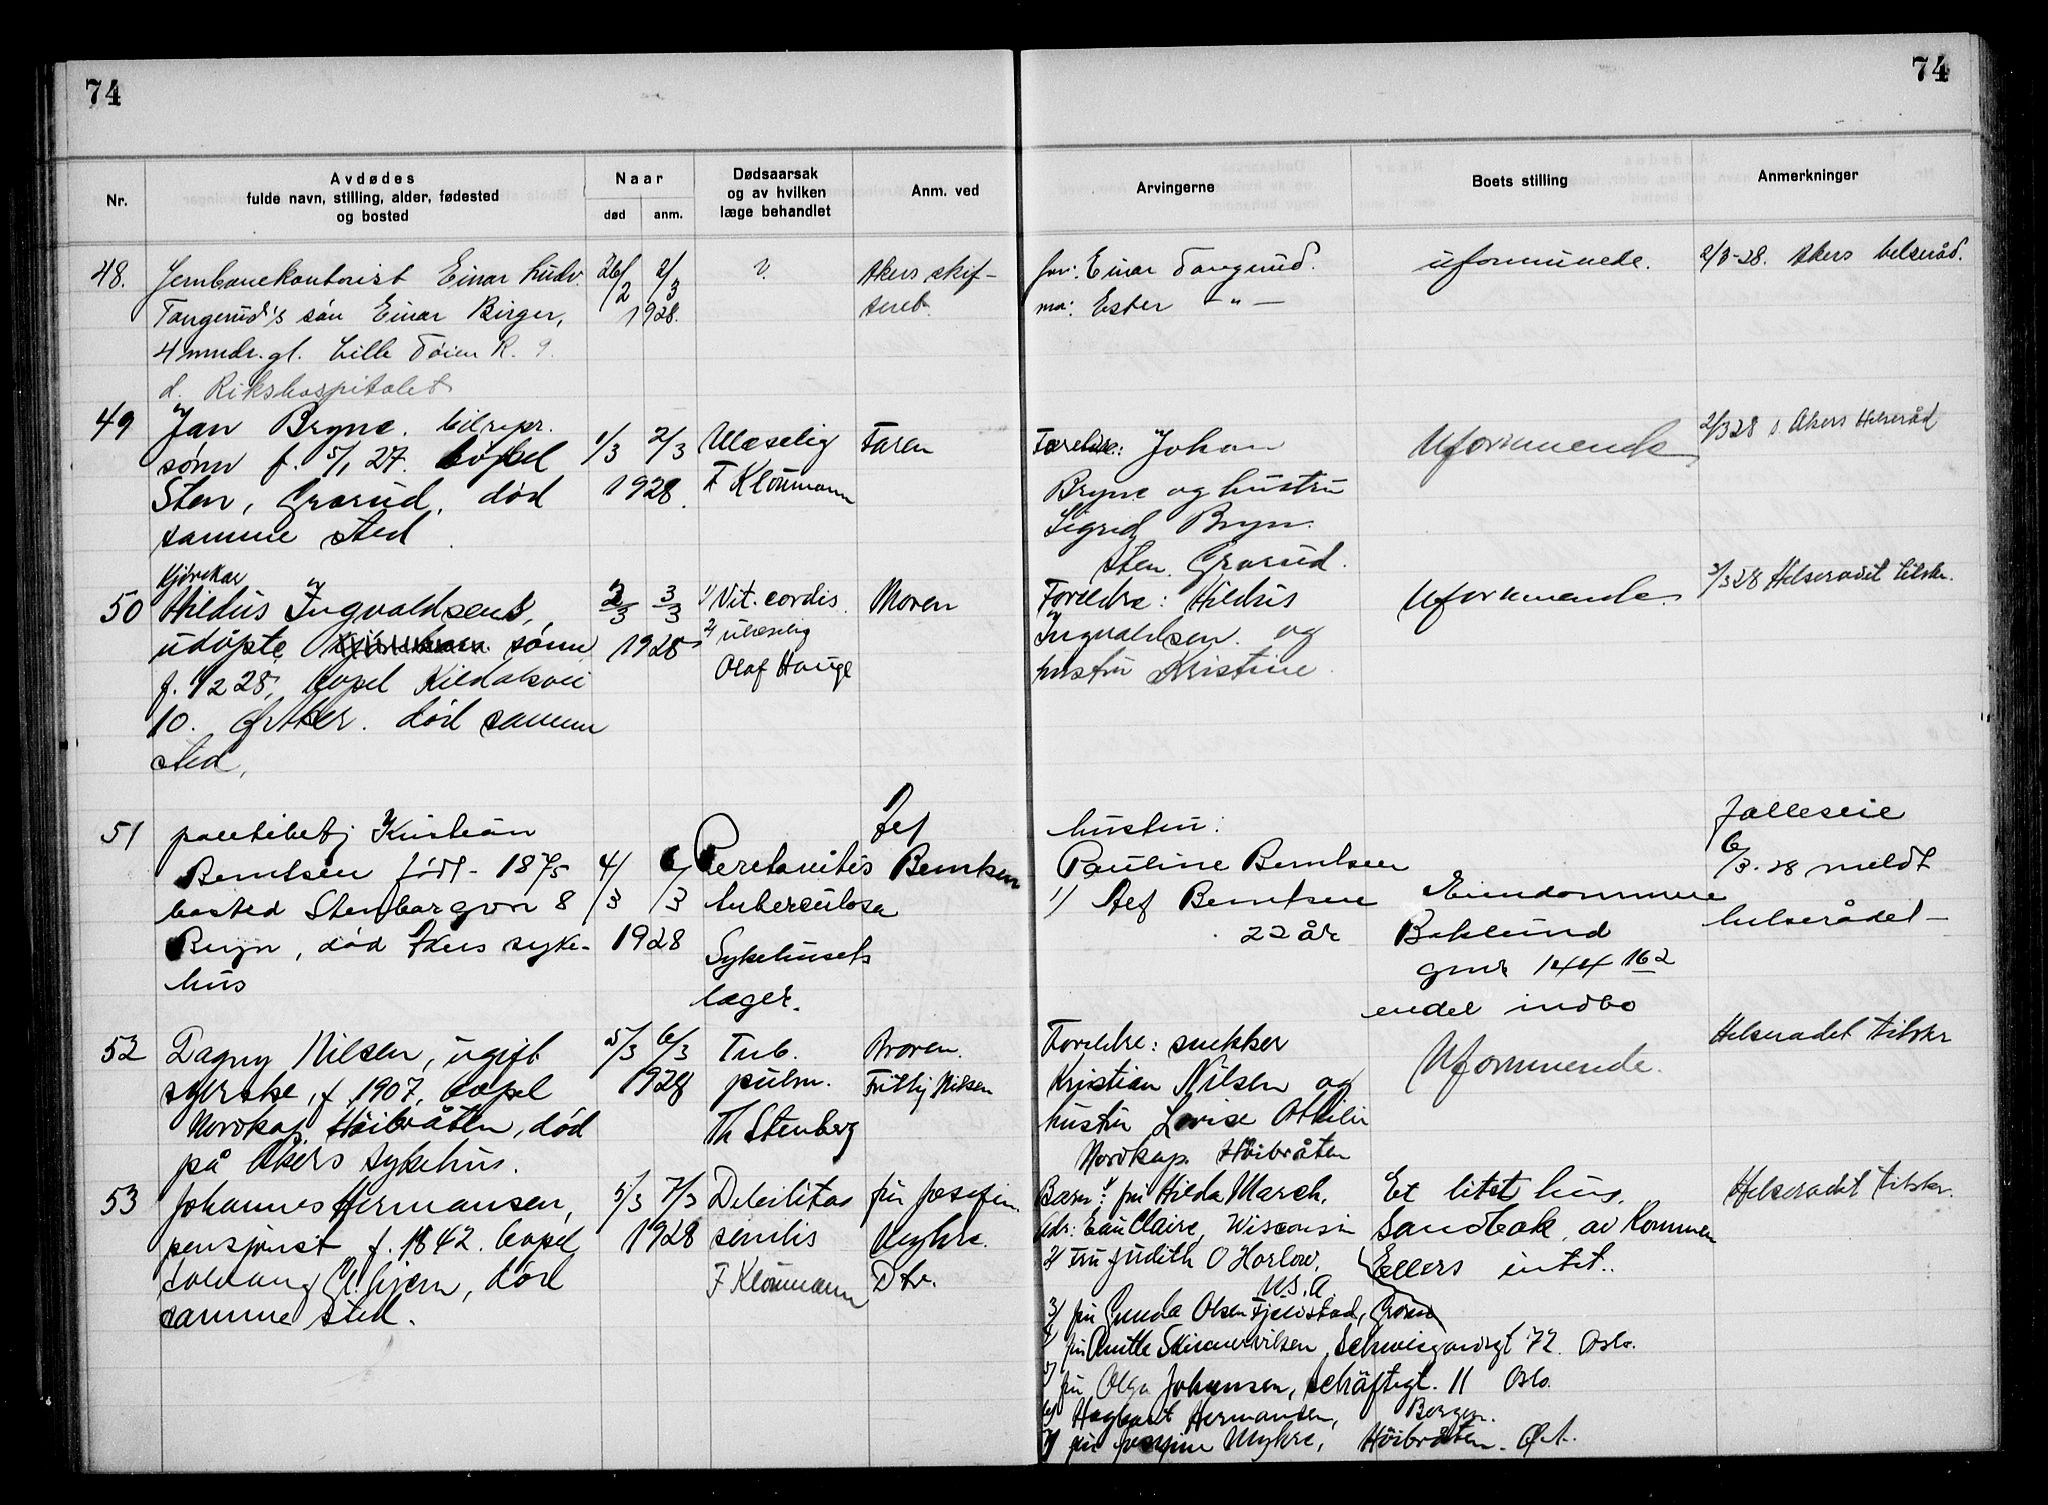 74
74
Nr.
Avdødes
fulde navn, stilling, alder, fødested
og bosted
Naar
død
anm.
Dødsaarsak
og av hvilken
læge behandlet
Anm. ved
Arvingerne
Boets stilling
Anmerkninger
48. Jernbanekontorist Einar Ludv. 26/2 2/3 ? Akers skif- far: Einar Tangerud. uformuende. 2/3-28. Akers helseråd.
Tangerud's sön Einar Birger, 1928. teret. ma: Ester -"-
4 mndr. gl. Lille Töien R. 9.
d. Rikshospitalet
49 Jan Bryne. bilrepr. Uformuende 2/3 28 s. Akers Helseråd
sønn f. 5/1 27. bopel 1/3 2/3 Ulæselig Faren Foreldre: Johan
Sten, Grorud, død 1928. F Kloumann Bryne og hustru
samme sted. Sigrid Bryn.
Sten. Grorud.
Kjørekar
50 Hildus Ingvaldsens, 2/3 3/3 1) Vit. cordis. Moren Foreldre: Hildus Uformuende. 3/3 28 Helseradet tilskr.
udøpte sønn 1928 2) ulæselig Ingvaldsen og
f. 1/2 28, bopel Kildalsvei Olaf Hauge hustru Kristine.
10. død samme
sted,
51 politibetj Kristian Leif hustru: Fælleseie
Berntsen født - 1875 4/3 6/3 Peretonitis Berntsen Pauline Berntsen 6/3-28 meldt
bosted Stenborgvn 8 tuberculosa 1) Leif Berntsen Eiendommen helserådet -
Bryn, død Akers syke- 1928 Sykehusets 22 år Beklund
hus læger. gnr 144 162
endel indbo
52 Dagny Nilsen, ugift 5/3 6/3 Tub. Broren. Foreldre: snekker Uformuende. Helseradet tilskr
syerske, f 1907, bopel 1928 pulm. Fritjhj Nilsen Kristian Nilsen og
Nordkap, Høibråten, død Th Stenberg hustru Lovise Ottilie
på Akers sykehus. Nordkap. Høibråten
53 Johannes Hermansen, 5/3 7/3 Debilitas fru Josefin. Barn: 1) fru Hilda March, Et litet hus. Helseradet tilskr.
pensjonist f. 1842. bopel 1928 senilis Myhre. Adr: Eau Claire, Wisconsin Sandbak, av Kommun
Solvang død F Kloumann Dtr. 2) Fru Judith O Harlow, Ellers intet..
samme sted. U.S.A.
3) fru Gunda Olsen Fjeldstad, Grorud
4) fru Schweigaardsgt 72. Oslo.
5) fru Olga Johansen, Schäftsgt. 11 Oslo.
6) Hagbart Hermansen, Bergen.
7) fru Josefine Myhre, Høibråten. Ø. A.